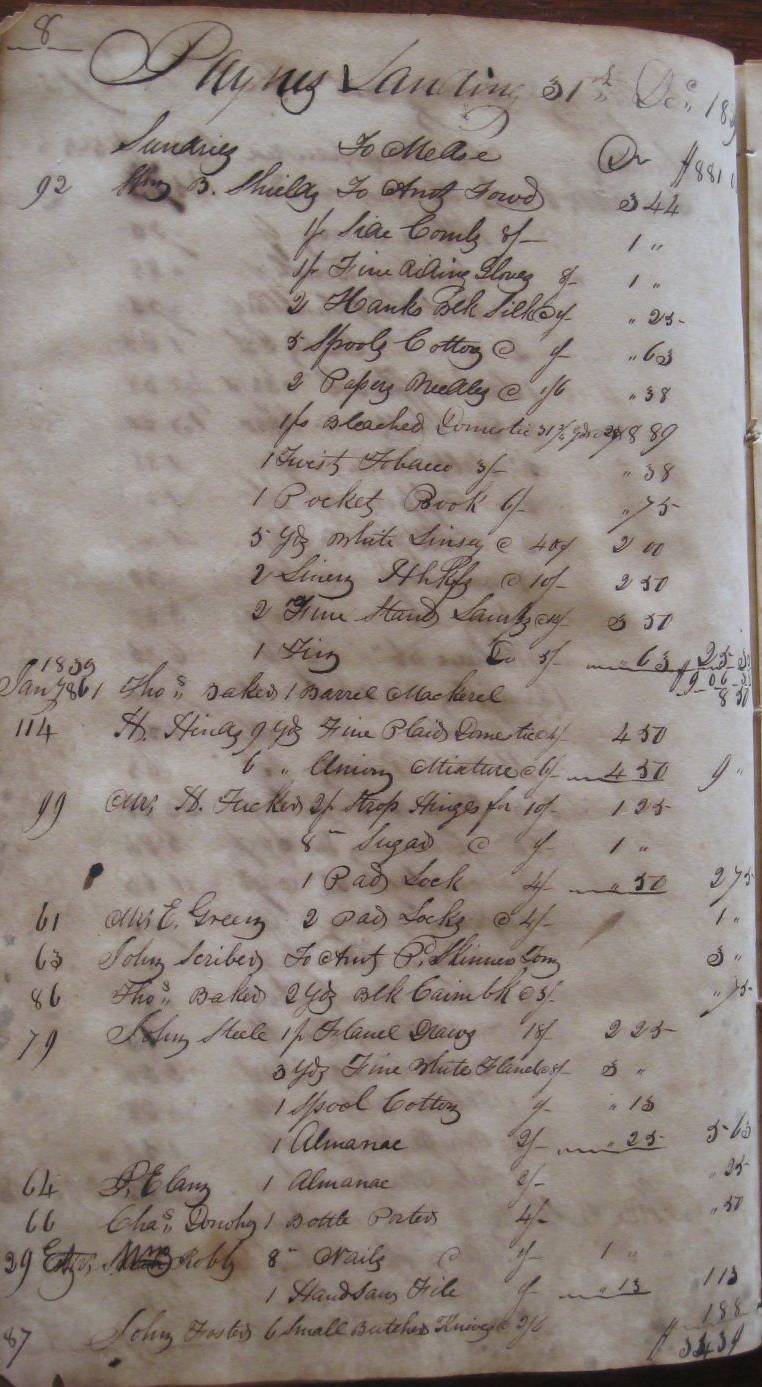 8
Paynes Landing 31st Decr 18
Sundries To Mdse Dr $881
92 Wm B. Shields To Amt Forwd 3 44
1 pr Side Combs 8/- 1 "
1 pr Fine Riding Gloves 8/- 1 "
2 Hanks Blk Silk @ 1/- " 25
5 Spools Cotton @ 1/- " 63
2 Papers Needles @ 1/6 " 38
1 ps Bleached Domestic 31 yds 8 89
1 Twist Tobacco 3/- " 38
1 Pocket Book 6/- " 75
5 Yds White Linsey @ 40¢ 2 00
2 Linen Hhkfs @ 10/- 2 50
2 Fine Stand 3 50
1 Do 5/- " 63 25
1839
Jany 1 86 Thos Baker 1 Barrel Mackerel 8 50
114 H. Hinds 9 Yds Fine Plaid Domestic @ 4/- 4 50
6 " Union Mixture @ 6/- 4 50 9 "
99 Mrs H. Tucker 2 pr Strop Hinges for 10/- 1 25
8 " Sugar @ 1/- 1 "
1 Pad Lock 4/- " 50 2 75
61 Mrs E. Green 2 Pad Locks @ 4/- 1 "
63 John Scriber To Amt P. Skinner 3 "
86 Thos Baker 2 Yds Blk @ 3/- " 75
79 John Steele 1 pr Flanel Draws 18/- 2 25
3 Yds Fine White Flanel @ 8/- 3 "
1 Spool Cotton 1/- " 13
1 Almanac 2/- " 25 5 63
64 P. Elam 1 Almanac 2/- " 25
66 Chas Donohy 1 Bottle Porter 4/- " 50
39 Robb 8 " Nails @ 1/- 1 "
1 Handsaw File 1/- " 13 1 13
87 John Foster 6 Small Butcher Knives @ 2/6 1 88
$ 34 39